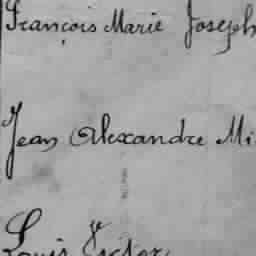 François Marie Joseph
Jean Alexandre Mi
Louis Victor